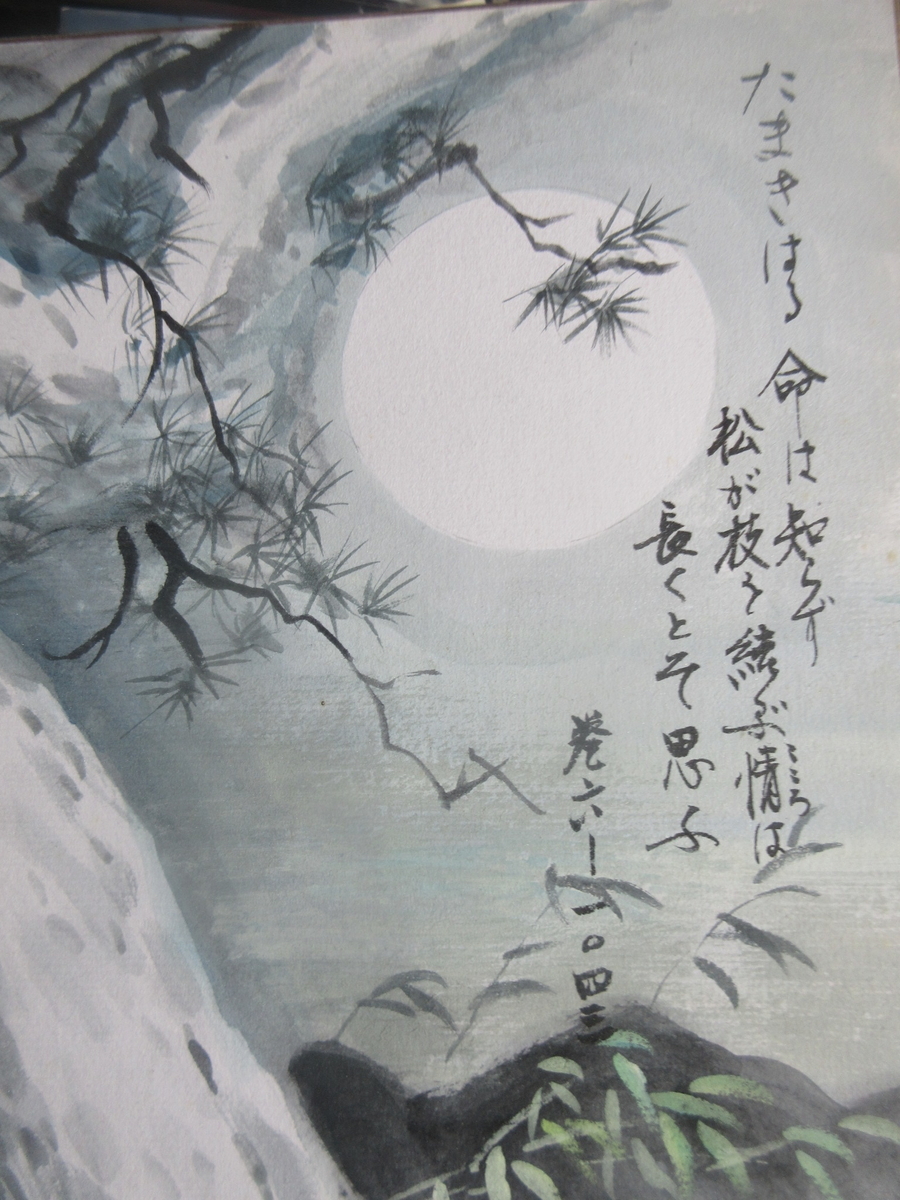 たまきはる 命は知らず
松が枝を結ぶ情は
こころ
長くとそ思ふ
巻六ー一〇四三